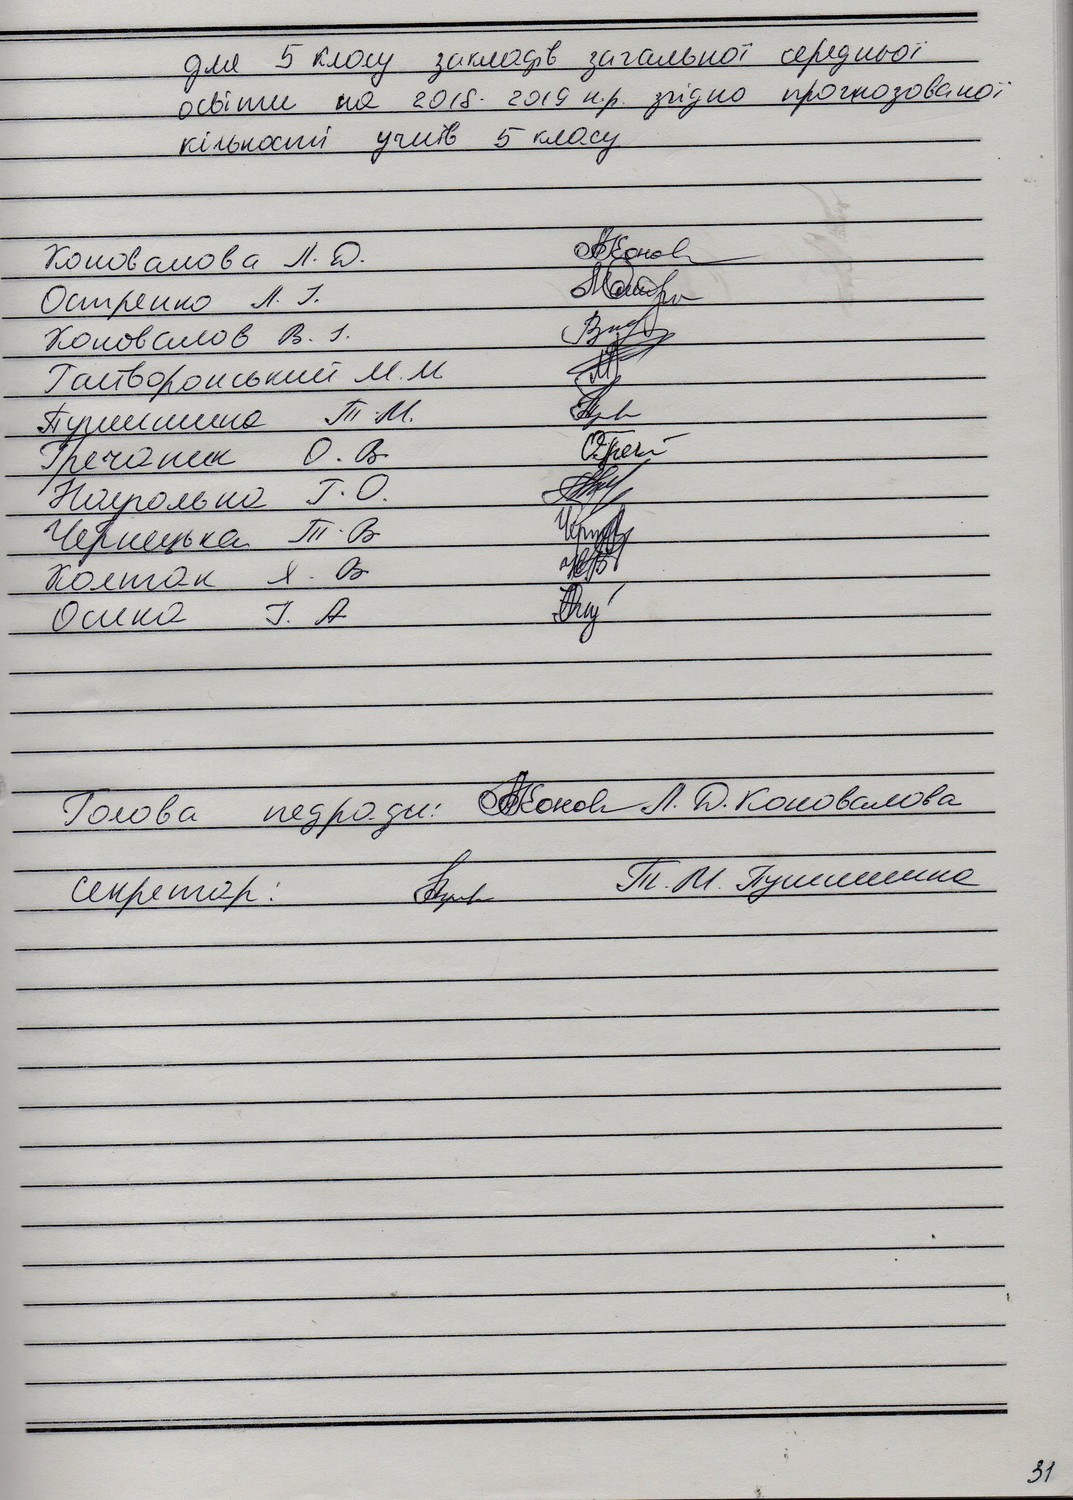 для 5 класу закладів загальної середньої
освіти на 2018-2019 н.р. згідно прогнозованої
кількості учнів 5 класу
Коновалова Л. Д.
Остренко Л. І.
Коновалов В. І.
Гайворонський М. М
Пушишина Т. М.
Гречаник О. В
Нагрольна Г. О.
Чернецька Т. В
Колтак Я. В
Осика Г. А
Голова педради: Л. Д. Коновалова
Секретар: Т. М. Пушишина
31